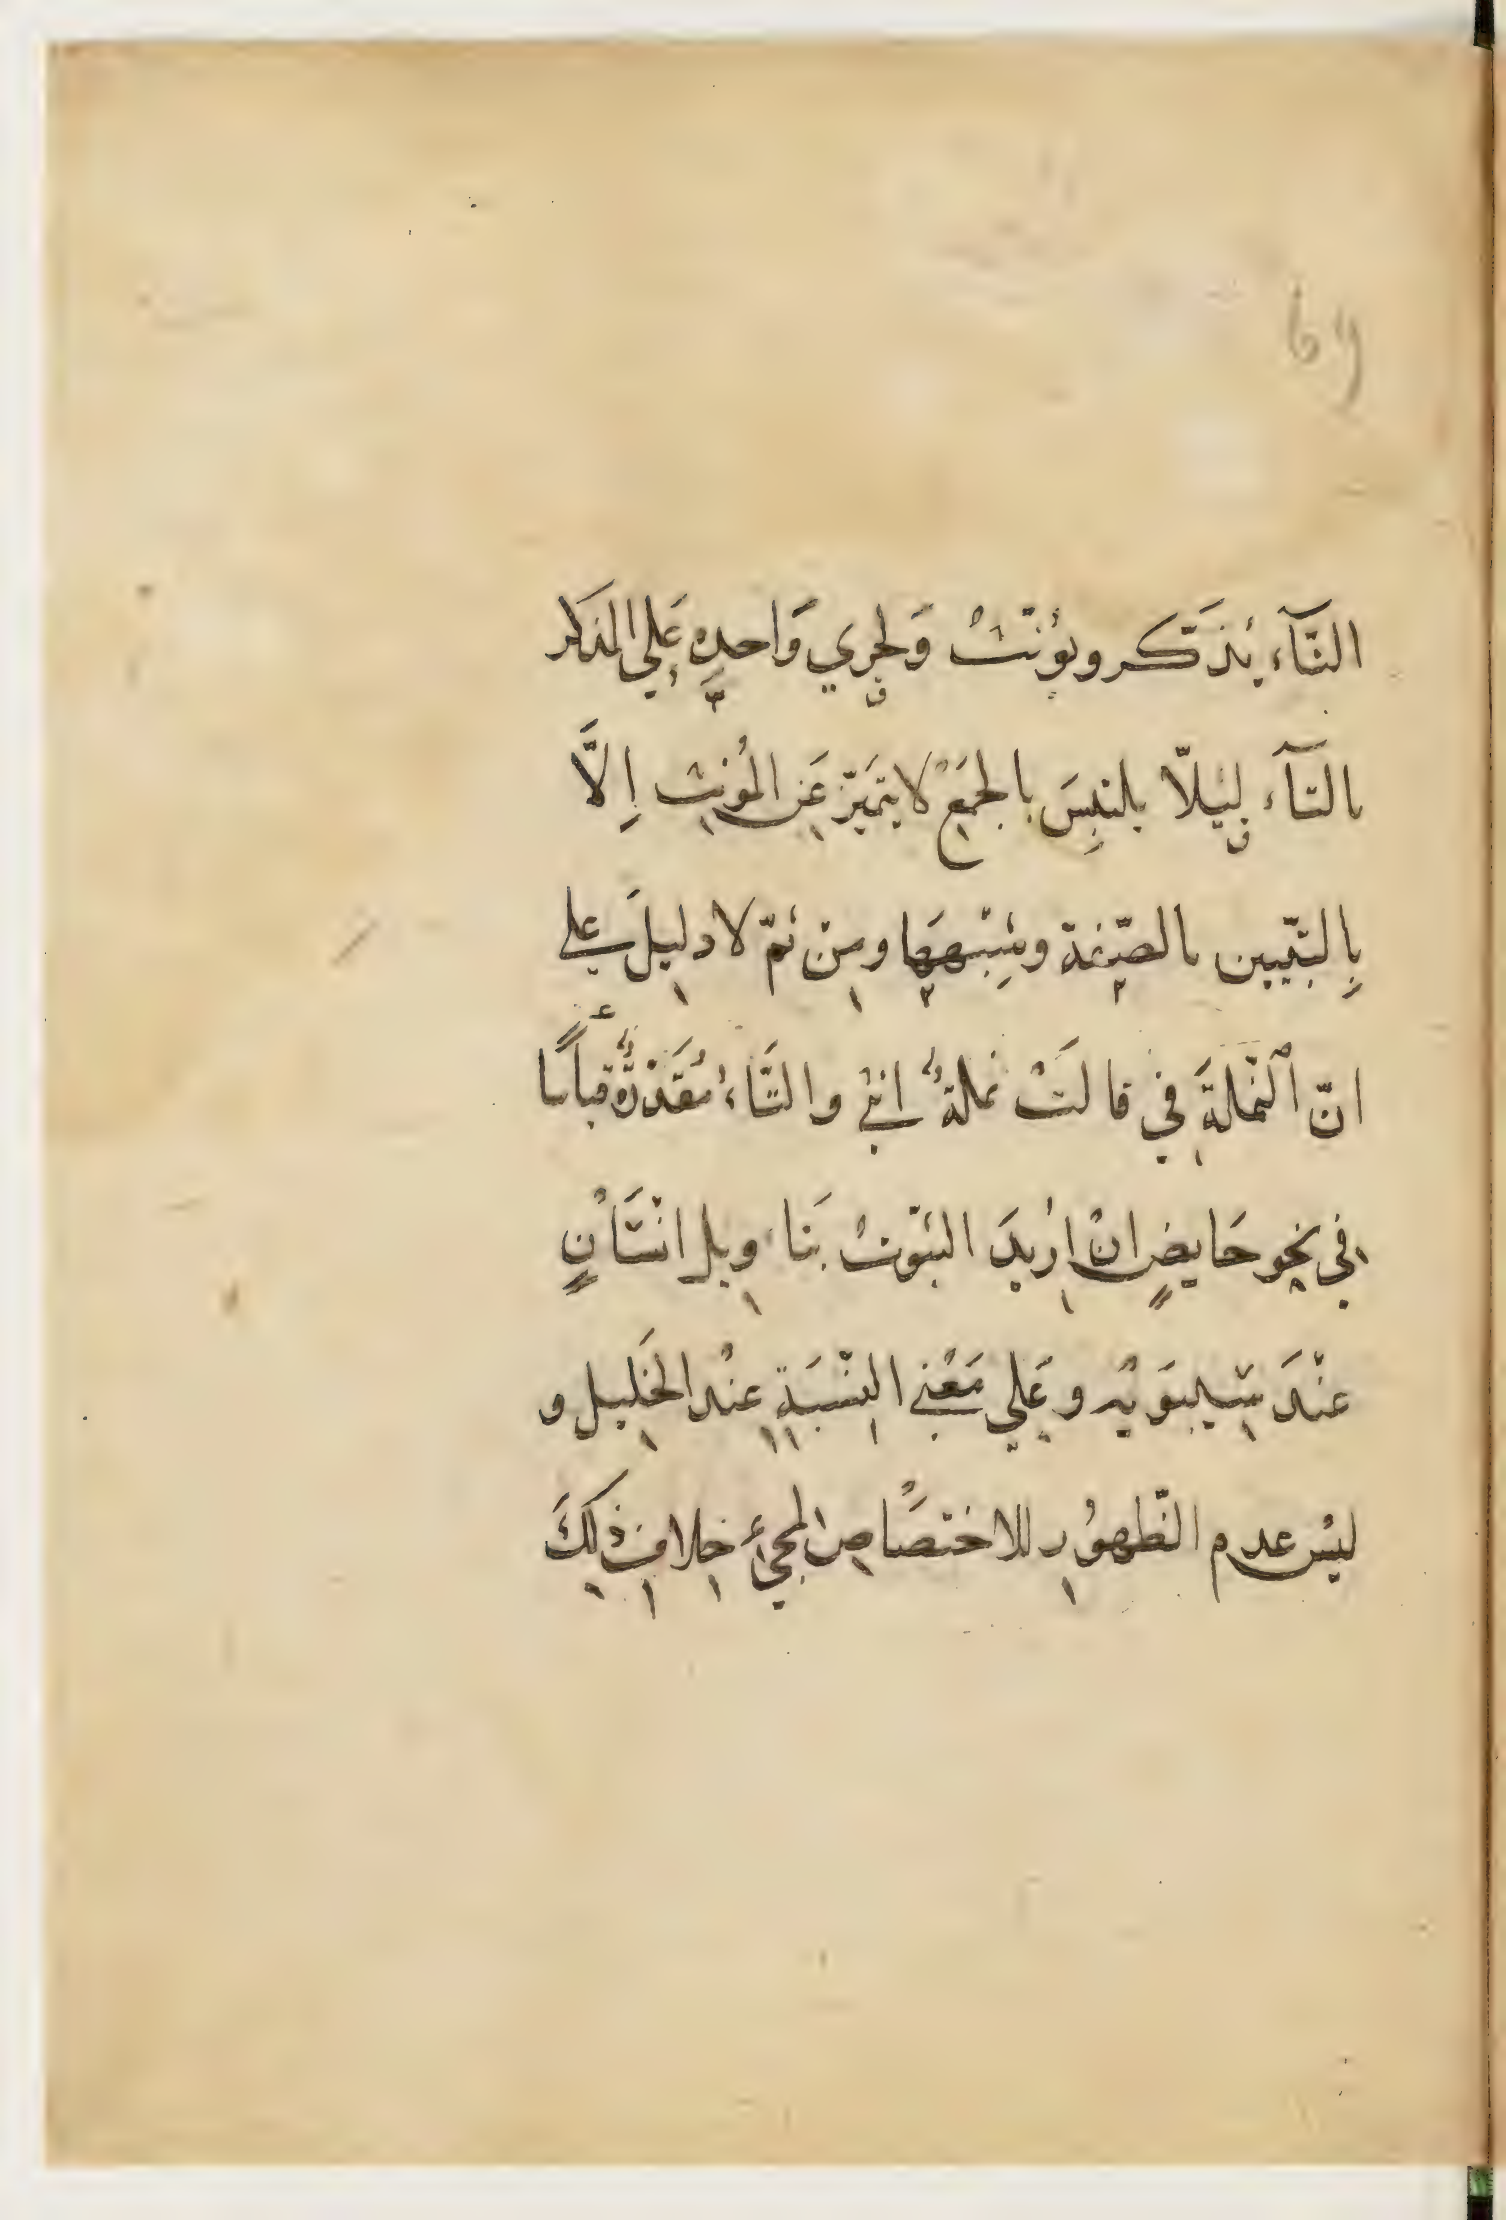 69
التّآء يُذَكّر ويُؤنّثُ وَلجري وَاحدِه عَلي المذكر
بالتآءَ لِئَلّا يلتبِسَ بالجمَعْ لا يتَمَيّز عَن المُؤنثِ اِلاَّ
بِالتّعيين بالصّيغة وشِبْهِهَا ومِنْ ثَمّ لا دليلَ علي
انّ ٱلنّملةَ في قالَتْ نملةٌ انثي والتَّاءُ مُقَدّرةٌ قياسًا
في نحو حَايضٍ انْ اُرِيدَ الثبُوْتُ بتا ويل انسَانٍ
عنْدَ سِيبَوَيْه وعَلي مَعْني النِّسْبَةِ عنْد الخَلِيل و
ليْس عدم الظّهوُر للاختصَاصِ لمجئ خِلافِ ذٰلِكَ